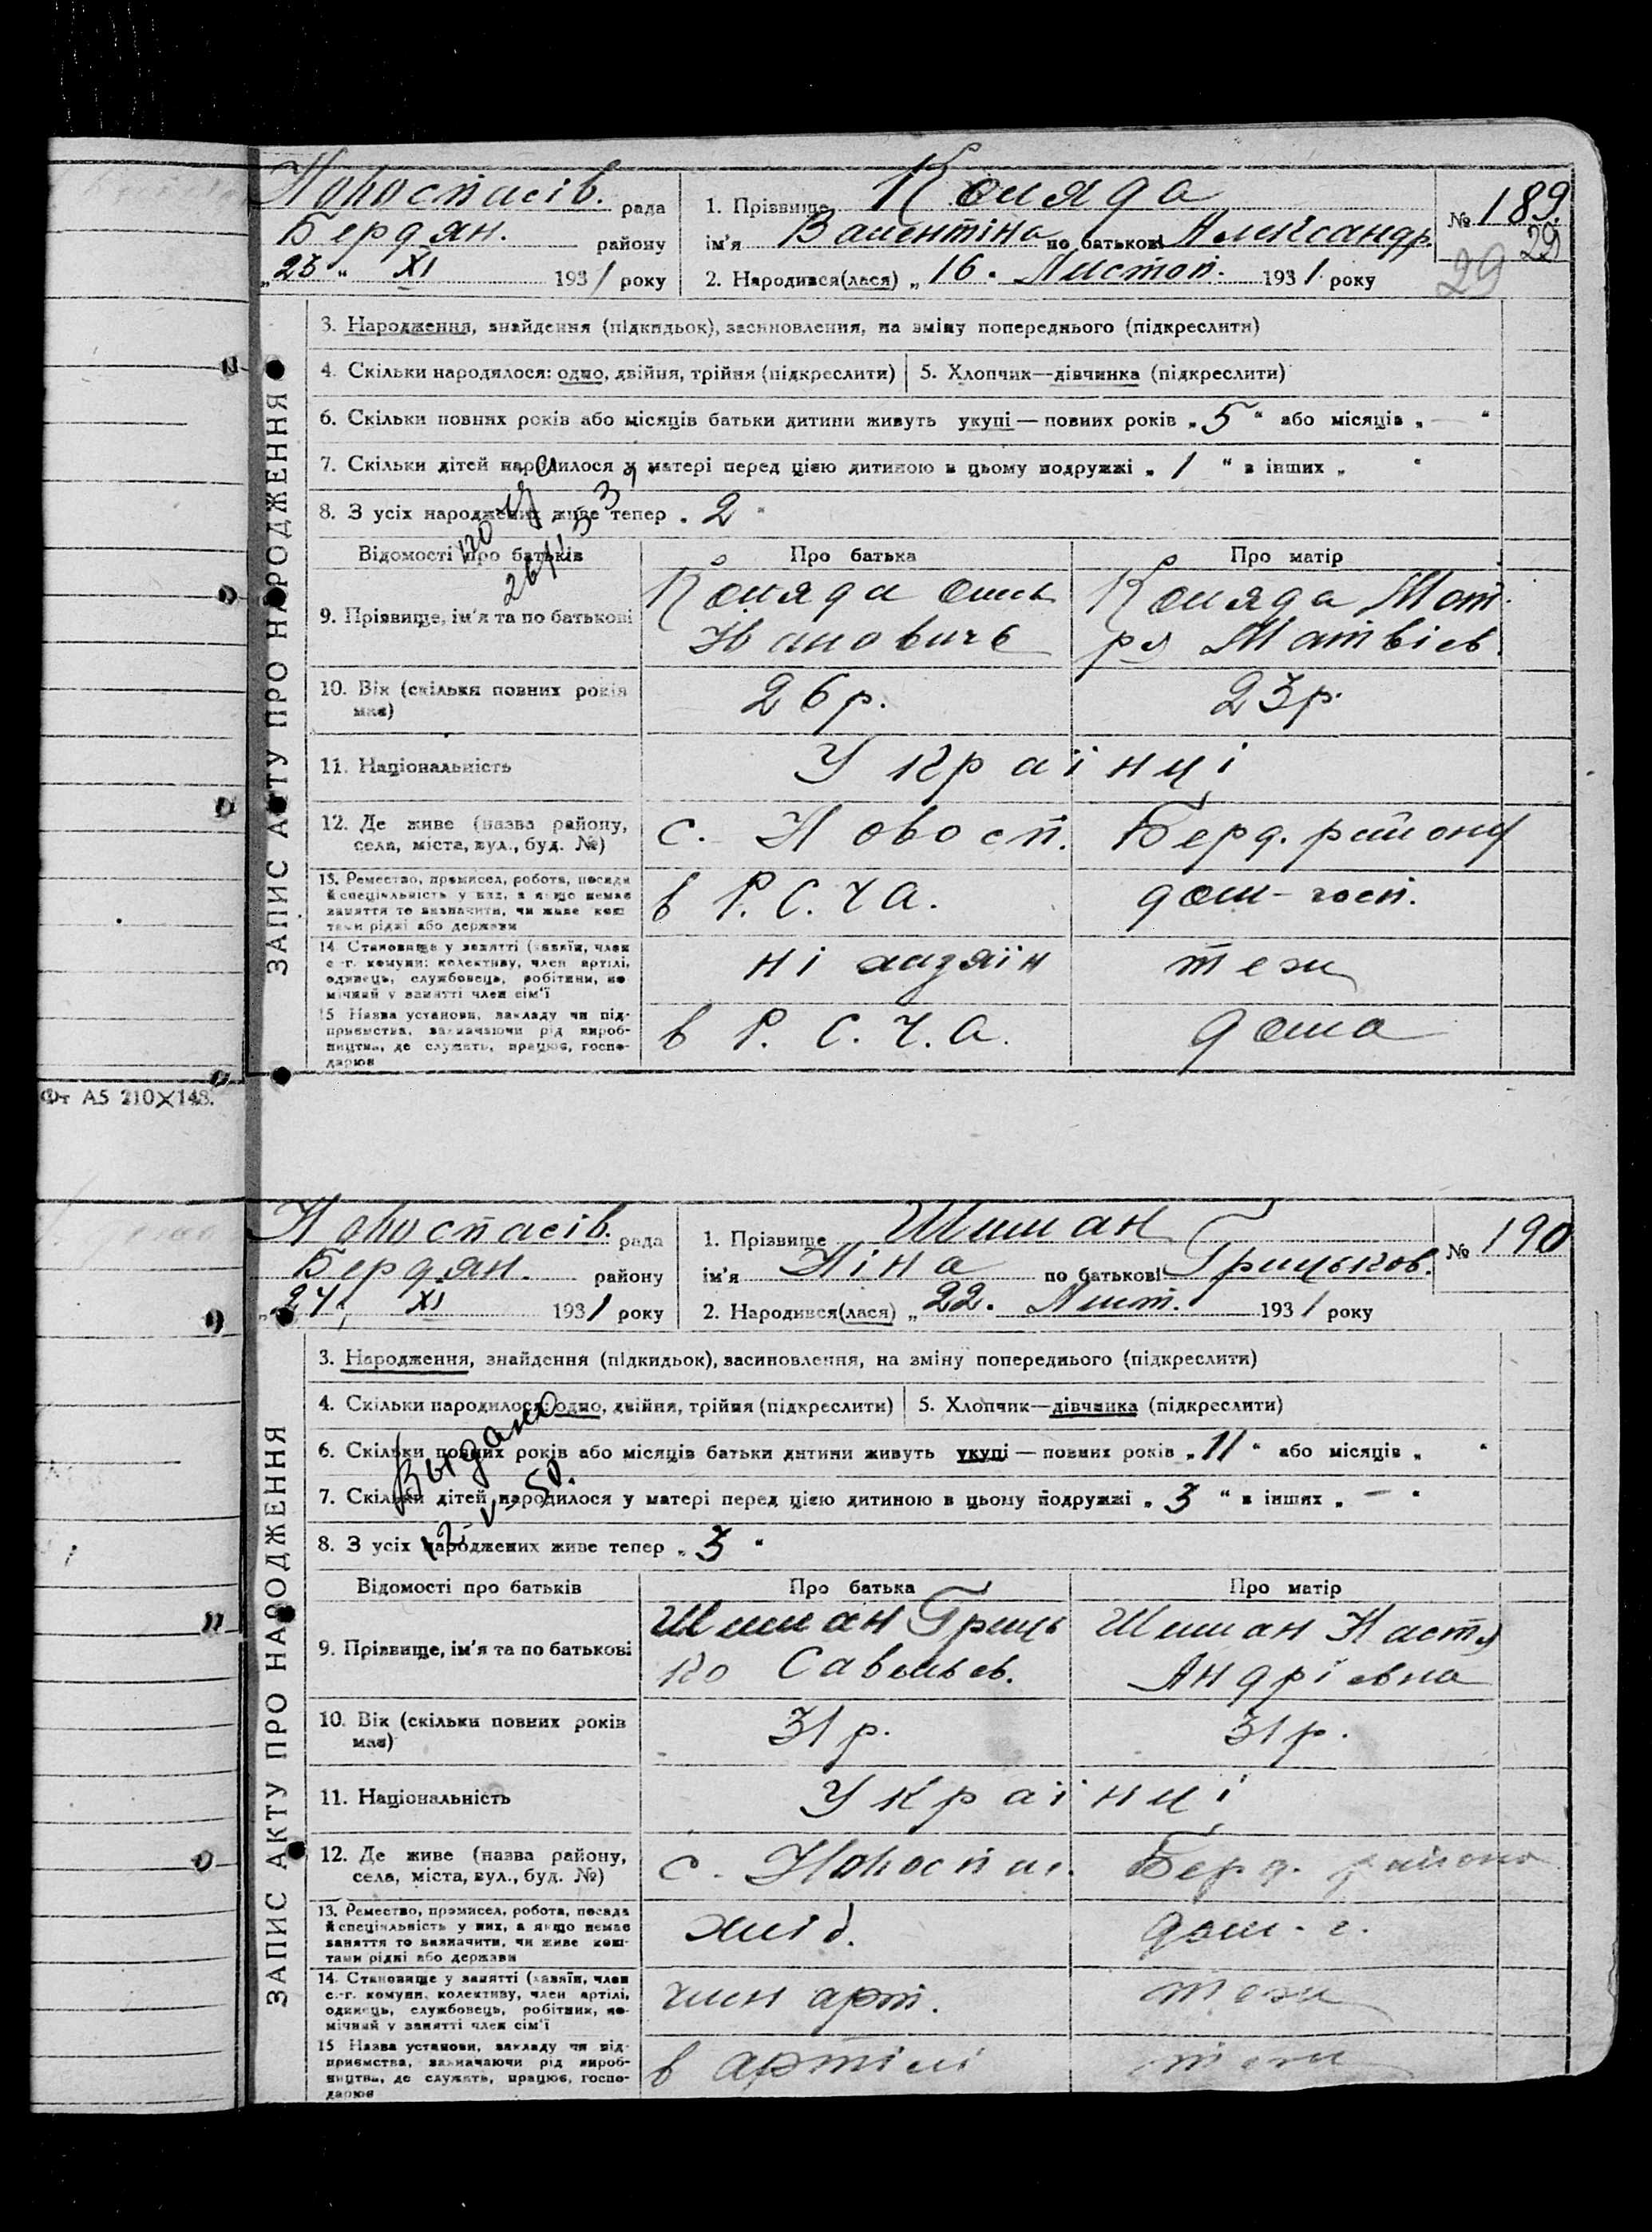 Новоспасів. рада
Бердян. району
„23“ XI 1931 року
1. Прізвище Коляда
ім'я Валентіна по батькові Александр.
2. Народився(лася) „16. Листоп. 1931 року
№ 189.
29
29
ЗАПИС АКТУ ПРО НАРОДЖЕННЯ
3. Народження, знайдення (підкидьок), засиновлення, на зміну попереднього (підкреслити)
4. Скільки народилося: одно, двійня, трійня (підкреслити) 5. Хлопчик—дівчинка (підкреслити)
6. Скільки повних років або місяців батьки дитини живуть укупі — повних років „5“ або місяців „—“
7. Скільки дітей народилося у матері перед цією дитиною в цьому подружжі „1“ в інших „ “
8. З усіх народжених живе тепер „2“
Відомості про батьків Про батька Про матір
9. Прізвище, ім'я та по батькові
Коляда Олек
Ивановичь
Коляда Мот
ря Матвієв.
10. Вік (скільки повних років
має)
26 р. 23 р.
11. Національність Українці
12. Де живе (назва району,
села, міста, вул., буд. №)
с. Новосп. Берд. району
13. Ремество, промисел, робота, посада
й спеціяльність у них, а якщо немає
заняття то визначити, чи живе кош
тами рідні або держави
в Р. С. Ч. А. дом-госп.
14. Становище у занятті (хазяїн, член
с.-г. комуни; колективу, член артілі,
одинець, службовець, робітник, по
мічний у занятті член сім'ї
теж
15 Назва установи, закладу чи під-
приємства, зазначаючи рід вироб-
ництва, де служить, працює, госпо-
дарює
в Р. С. Ч. А. дома
Фт А5 210×148.
Новоспасів. рада
Бердян. району
„24“ XI 1931 року
1. Прізвище Шиман
ім'я Ніна по батькові Грицьков.
2. Народився(лася) „22. Лист. 1931 року
№ 190
ЗАПИС АКТУ ПРО НАРОДЖЕННЯ
3. Народження, знайдення (підкидьок), засиновлення, на зміну попереднього (підкреслити)
4. Скільки народилося: одно, двійня, трійня (підкреслити) 5. Хлопчик—дівчинка (підкреслити)
Выдано
12-V-50.
6. Скільки повних років або місяців батьки дитини живуть укупі — повних років „11“ або місяців „ “
7. Скільки дітей народилося у матері перед цією дитиною в цьому подружжі „3“ в інших „—“
8. З усіх народжених живе тепер „3“
Відомості про батьків Про батька Про матір
9. Прізвище, ім'я та по батькові
Шиман Гриць
ко Савельев.
Шиман Настя
Андрієвна
10. Вік (скільки повних років
має)
31 р. 31 р.
11. Національність Українці
12. Де живе (назва району,
села, міста, вул., буд. №)
с. Новоспас. Берд. району
13. Ремество, промисел, робота, посада
й спеціяльність у них, а якщо немає
заняття то визначити, чи живе кош-
тами рідні або держави
хліб. дом. г.
14. Становище у занятті (хазяїн, член
с.-г. комуни, колективу, член артілі,
одинець, службовець, робітник, по-
мічний у занятті член сім'ї
член арт. теж
15 Назва установи, закладу чи під-
приємства, зазначаючи рід вироб-
ництва, де служить, працює, госпо-
дарює
в артілі теж